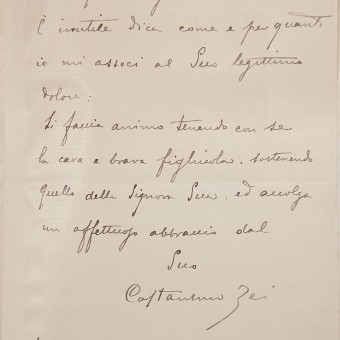 È inutile dica come e per quanto
io mi associ al Suo legittimo
dolore:
Si faccia animo tenendo con se
la cara e brava figliuola, sostenendo
quello della Signora Sua, ed accolga
un affettuoso abbraccio dal
Suo
Costantino Zei